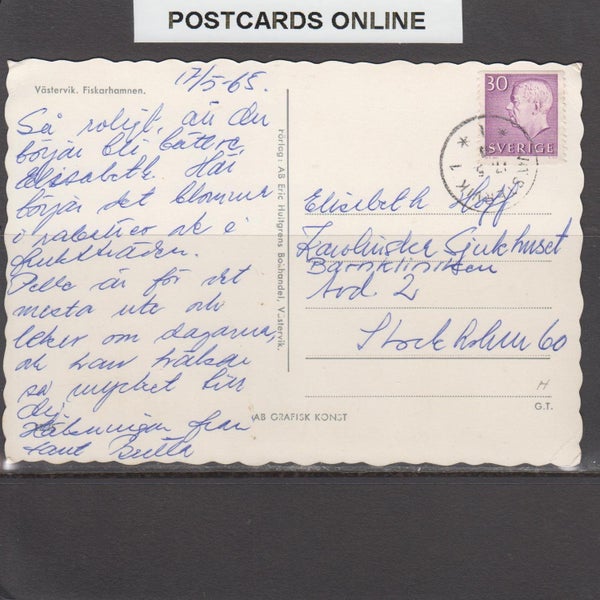 POSTCARDS ONLINE
Västervik. Fiskarhamnen.
17/5-65.
Så roligt, att du
börjar bli bättre,
Elisabeth. Här
börjar det blomma
i rabatter och i
fruktträden.
Pelle är för det
mesta ute och
leker om dagarna,
och han hälsar
så mycket till
dig.
Hälsningar från
tant Britta
Förlag: AB Eric Hultgrens Bokhandel, Västervik.
AB GRAFISK KONST
30
SVERIGE
VÄSTERVIK 1
Elisabeth Hoff
Karolinska Sjukhuset
Barnkliniken
Avd 2
Stockholm 60
H
G.T.